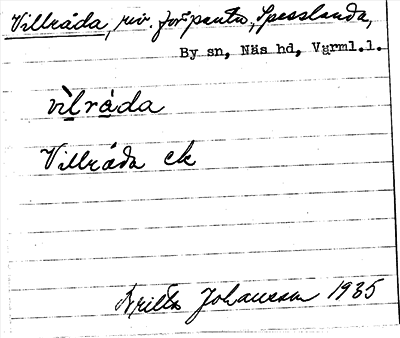 Villråda, riv. för panta, Spesslanda,
By sn, Näs hd, Värml.l.
vìlråda
Villråda ek
Britta Johansson 1935